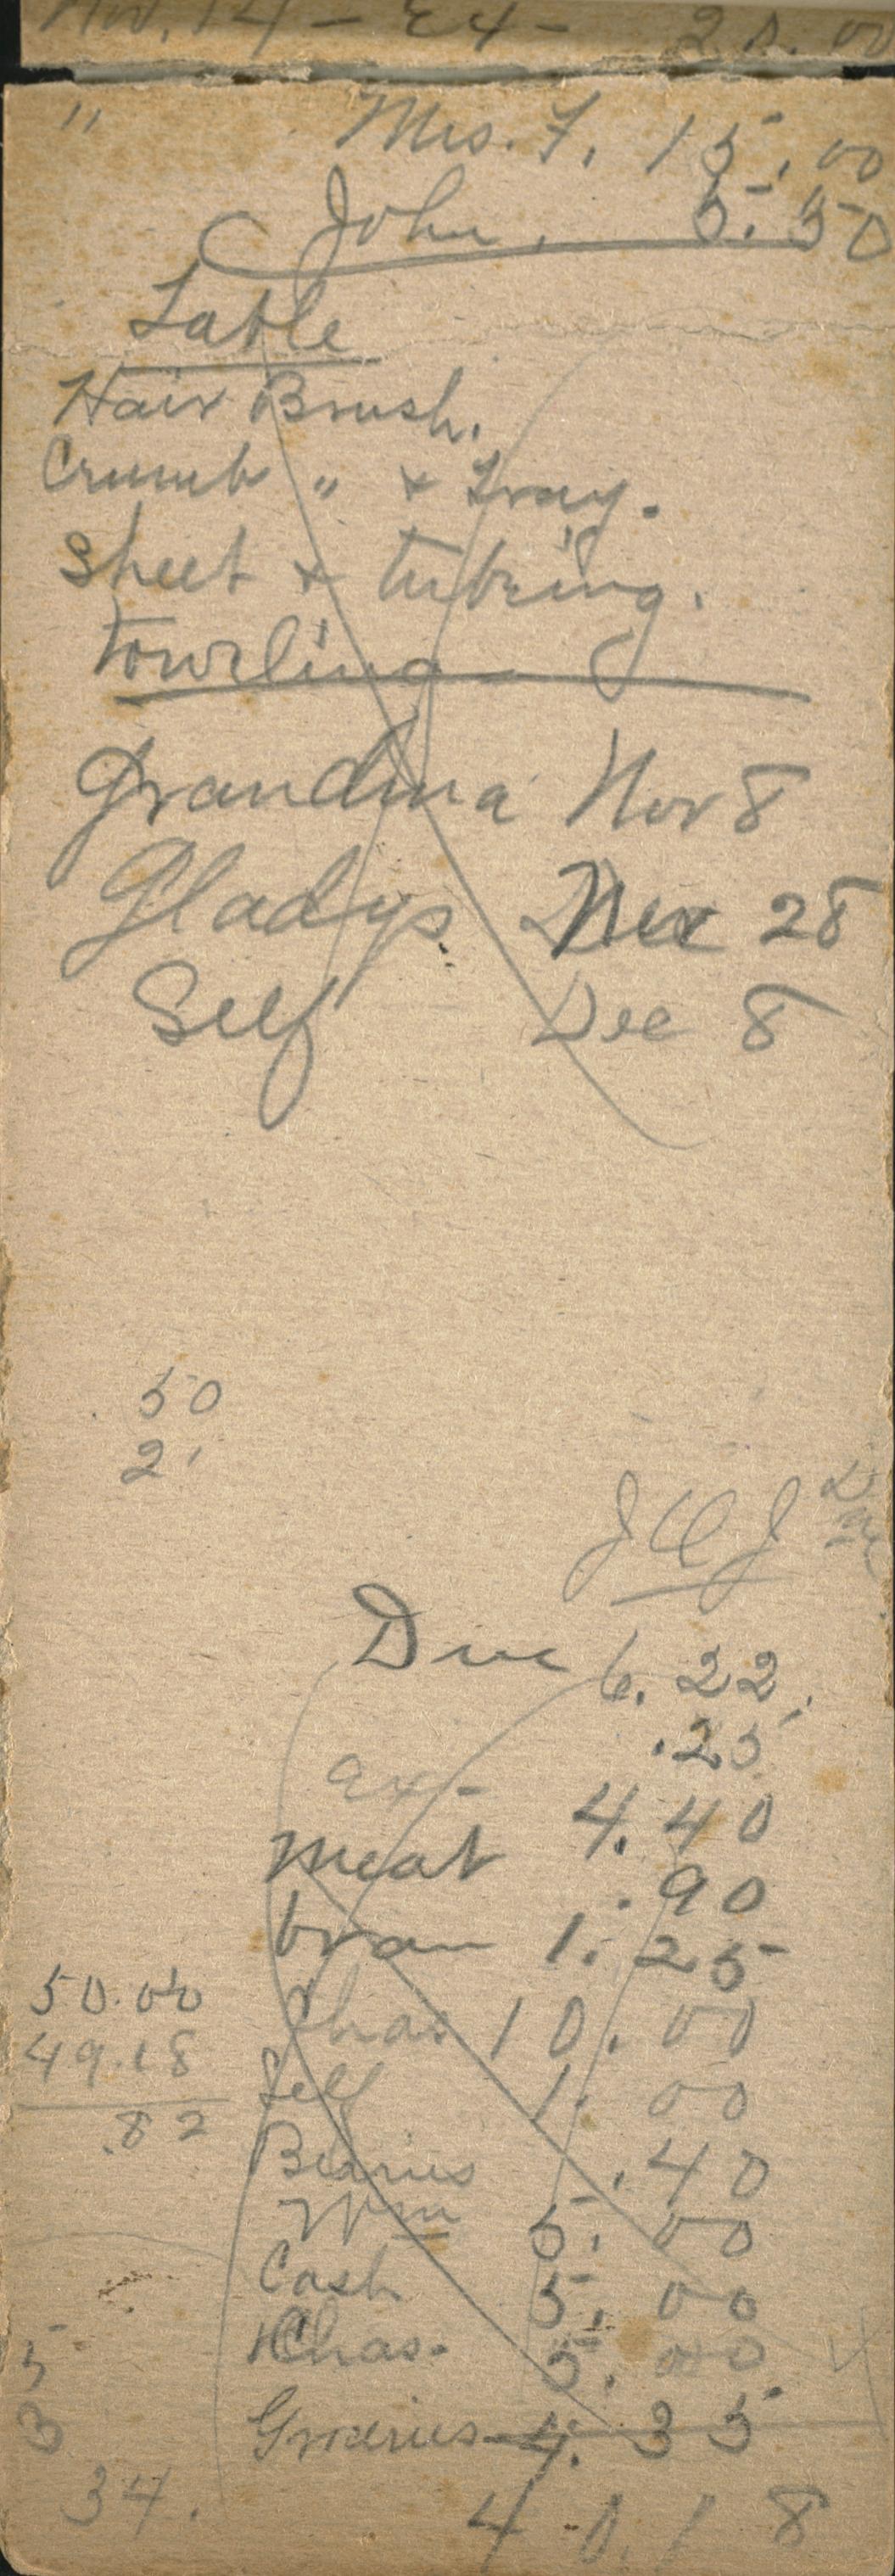 Nov. 14 - Ex - 20.00
" Mrs. F. 15.00
John. 5.50
Table
Hair Brush.
Crumb " + Tray.
Sheet + tubing.
Toweling
Grandma Nov 8
Gladys 28
Self Dec 8
50
2
J C J
Due 6.22
.25
Ex - 4.40
Meat .90
bran 1.25
Chas 10.00
Self 1.00
50.00
49.18
.82
Berries .40
Wm 5.00
Cash 5.00
Chas. 5.00
5
3
Groceries 4.35
34.
40.18